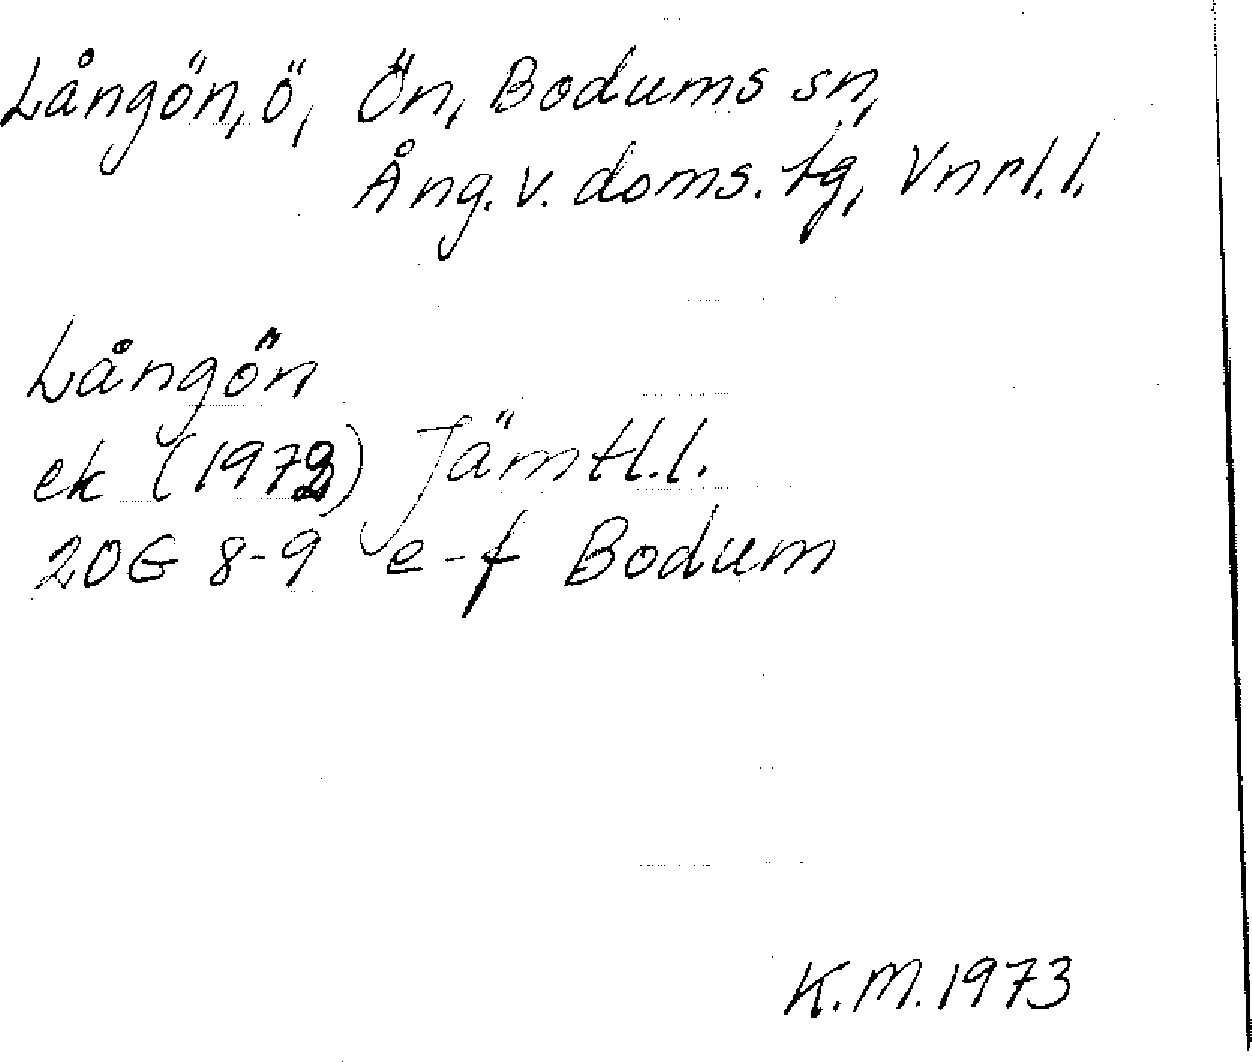 Långön, ö, Ön, Bodums sn,
Ång. v. doms. tg, Vnrl. l.
Långön
ek (1972) Jämtl. l.
20G 8-9 e-f Bodum
K.M. 1973